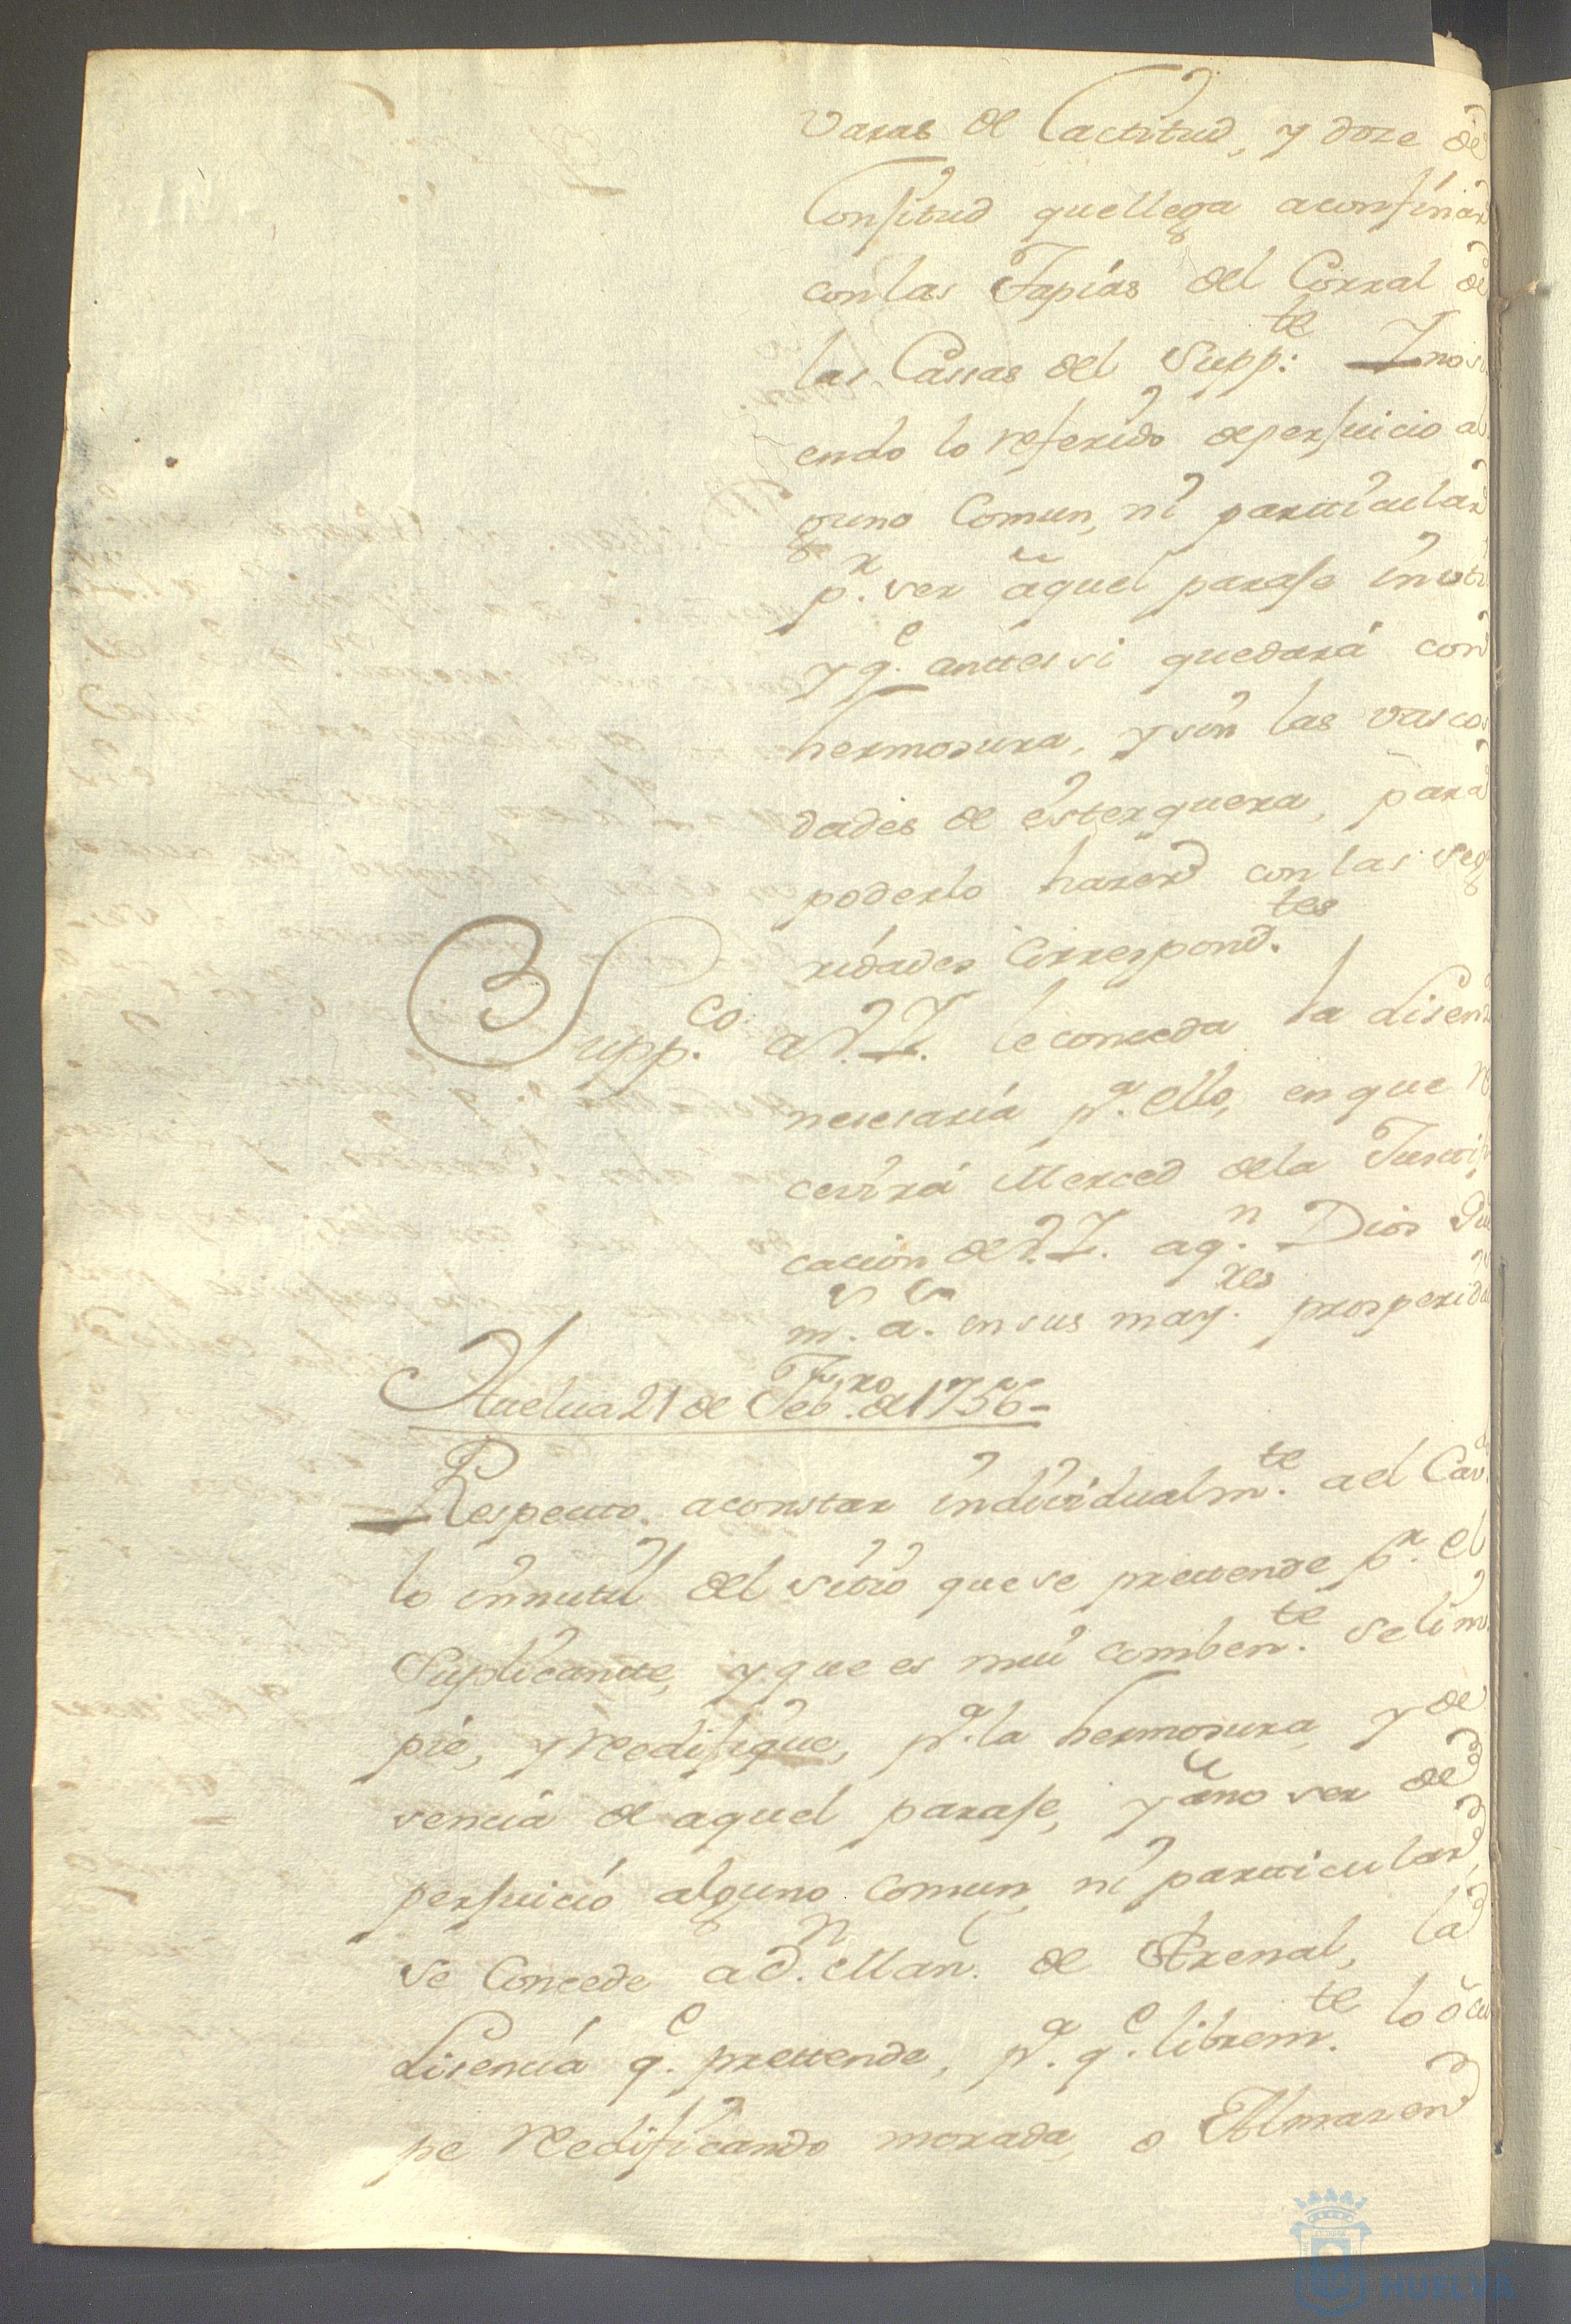 varas de Lactitud, y doze de
Lonjitud que llega a confinar
con las Tapias del Corral de
las Cassas del Supp.te Y no si
endo lo referido de perjuicio al
guno Comun, ni particular
p.r ser aquel paraje inuti
y q.e antes si quedará con
hermosura, y sin las vasco
dades de esterquera, para
poderlo hazer con las segu
ridades Correspond.tes
Supp.co a V.S. le conceda la Lisen
nesesaria p.a ello, en que re
cevirá Merced de la Justifi
cacion de V.S. a q.n Dios Gue
m.s a.s en sus may.res prosperida
Huelua 21 de Feb.ro de 1756 =
Respecto a constar individualm.te a el Cav.o
lo innutil del sitio que se prettende p.r el
Suplicante, y que es mui comben.te se lim
pie, y reedifique, p.a la hermosura y de
sencia de aquel paraje, y a no ser de
perjuicio alguno comun, ni particular,
se Concede a D.n Man.l de Arenal, la
Lisencia q.e prettende, p.a q.e librem.te lo ocu
pe reedificando morada, o Almazen
HUELVA